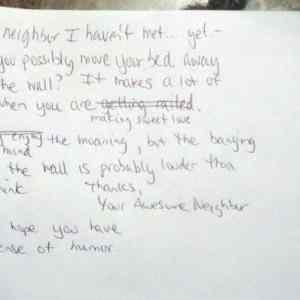 neighbor I haven't met... yet -
you possibly move your bed away
the wall? It makes a lot of
when you are getting railed.
making sweet love
enjoy the moaning, but the banging
mind
the wall is probably louder than
think
Thanks,
Your Awesome Neighbor
hope you have
sense of humor